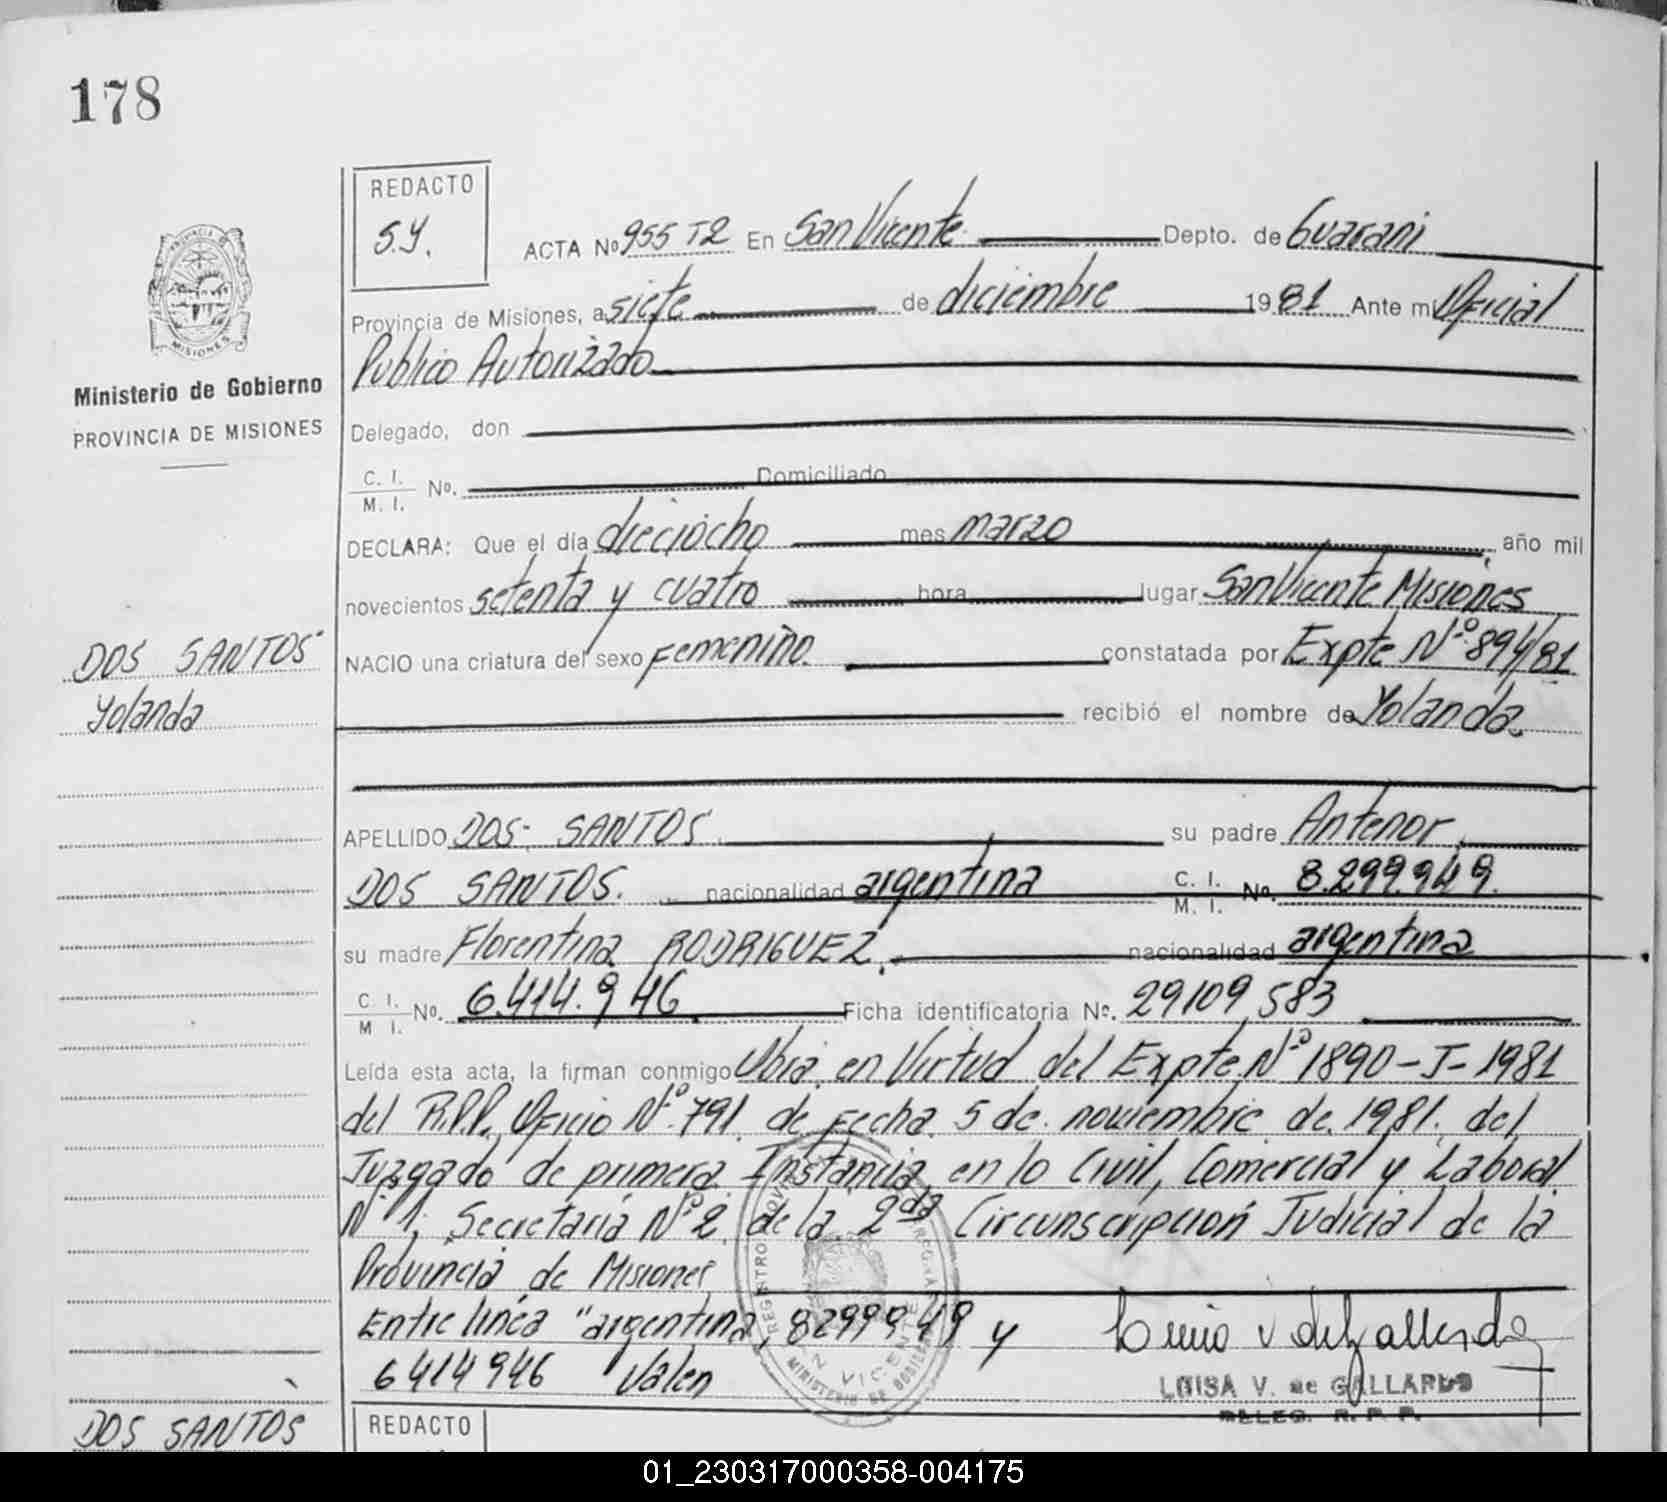 178
REDACTO
S.Y.
ACTA Nº 955 T2 En San Vicente Depto. de Guarani
Provincia de Misiones, a siete de diciembre 1981 Ante mi Oficial
Publico Autorizado
Ministerio de Gobierno
PROVINCIA DE MISIONES
Delegado, don
C. I.
M. I. No. Domiciliado
DECLARA: Que el día dieciocho mes marzo año mil
novecientos setenta y cuatro hora lugar San Vicente Misiones
DOS SANTOS
Yolanda
NACIO una criatura del sexo femenino. constatada por Expte Nº 894/81
recibió el nombre de Yolanda.
APELLIDO DOS SANTOS su padre Antenor
DOS SANTOS. nacionalidad argentina C. I. M. I. No. 8.299.949.
su madre Florentina RODRIGUEZ. nacionalidad argentina
C. I. M I. No. 6.414.946 Ficha identificatoria No. 29109583
Leída esta acta, la firman conmigo en Virtud del Expte Nº 1890-J-1981
del R.P.P. Oficio Nº 791 de fecha 5 de noviembre de 1981. del
Juzgado de primera Instancia en lo Civil, Comercial y Laboral
Nº 1, Secretaria Nº 2 de la 2da Circunscripción Judicial de la
Provincia de Misiones
Entre línea "argentina, 8299949 y
6414946 Valen
LUISA V. de GALLARDO
DELEG. R. P. P.
SAN VICENTE
MINISTERIO DE GOBIERNO
DOS SANTOS
REDACTO
01_230317000358-004175